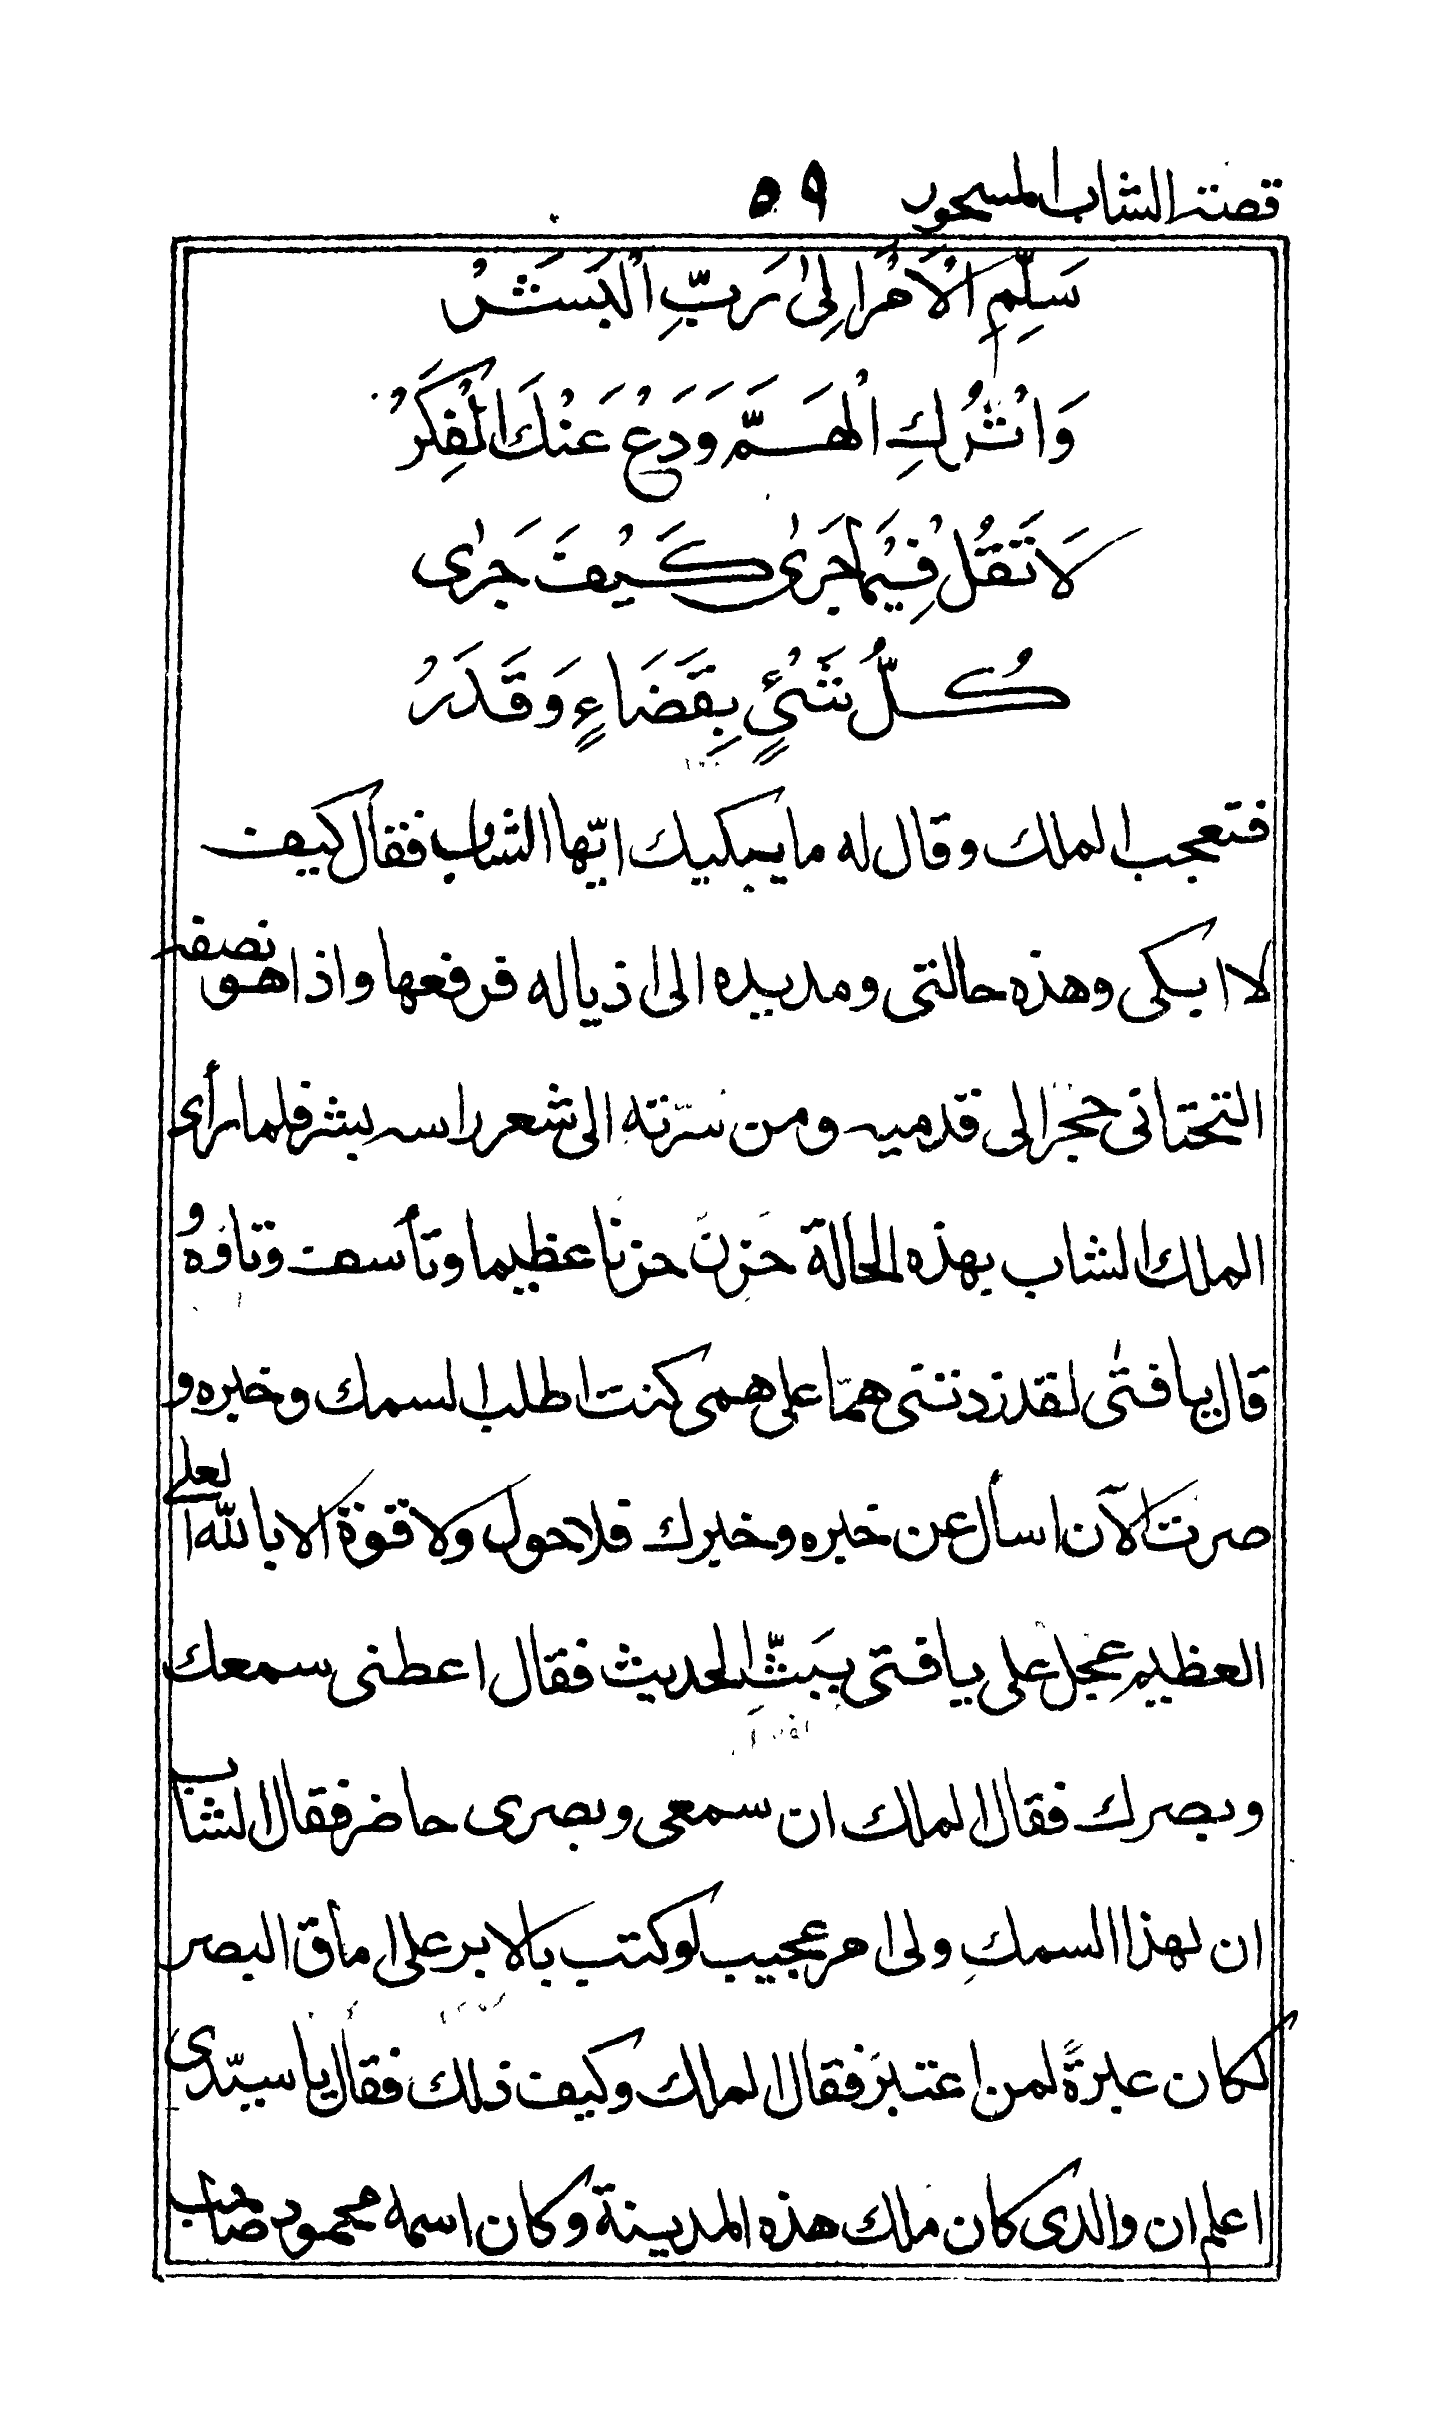 قصة الشاب المسحور ٥٩
سَلِّمِ الْاَمْرَ اِلىٰ رَبِّ الْبَشَرْ
وَاتْرُكِ الْهَمَّ وَدَعْ عَنْكَ الْفِكَرْ
لَا تَقُلْ فِيْمَا جَرىٰ كَيْفَ جَرٰى
كُلُّ شَيْءٍ بِقَضَاءٍ وَقَدَرْ
فتعجب الملك وقال له ما يبكيك ايّها الشاب فقال كيف
لا ابكى وهذه حالتى ومد يده الى اذياله فرفعها واذا هو نصفه
التحتانى حجر الى قدميه ومن سرّته الى شعر راسه بشر فلما رأى
الملك الشاب بهذه الحالة حَزِنَ حزنا عظيما وتأسف وتاوه
قال يا فتٰى لقد زدتنى همّا على همى كنت اطلب السمك وخبره و
صرت الآن اسأل عن خبره وخبرك فلا حول ولا قوة الا بالله العلى
العظيم عجل على يا فتى بِبَثِّ الحديث فقال اعطنى سمعك
وبصرك فقال الملك ان سمعى وبصرى حاضر فقال الشاب
ان لهذا السمكِ ولى امر عجيب لو كتب بالابر على امأق البصر
لكان عبرةً لمن اعتبَرَ فقال الملك وكيف ذلك فقال يا سيّدى
اعلم ان والدى كان ملك هذه المدينة وكان اسمه محمود صاحب